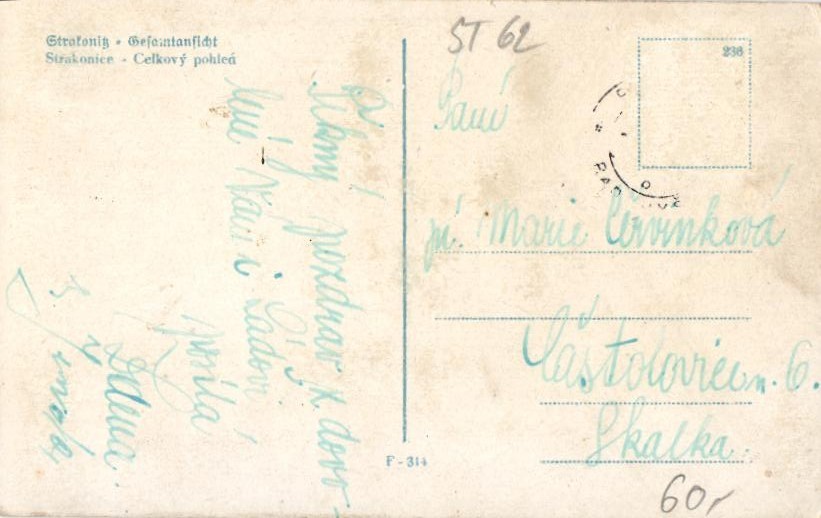 Strakonitz • Gesamtansicht
Strakonice - Celkový pohled
ST 62
236
Paní
pí. Marie Červinková
Částolovice n. 6.
Skalka.
60,-
F - 314
Pěkný pozdrav k dovo-
lené Vám i Láďovi
posílá
Zdena